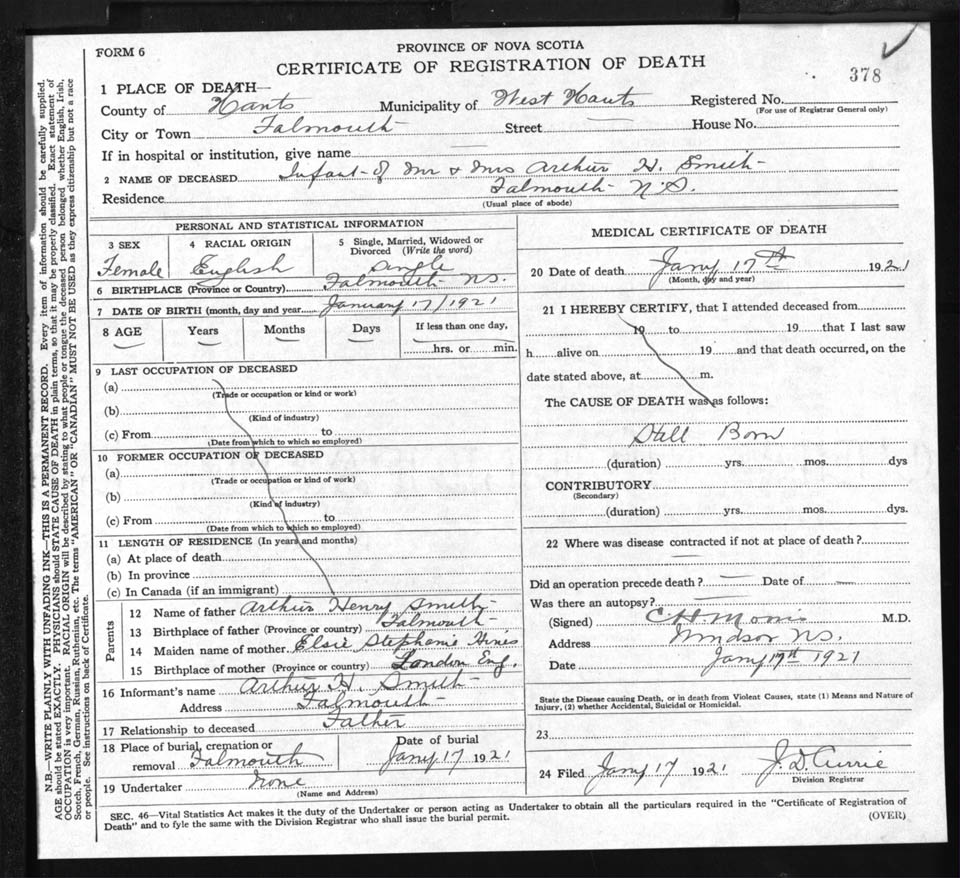 FORM 6
PROVINCE OF NOVA SCOTIA
CERTIFICATE OF REGISTRATION OF DEATH
378
1 PLACE OF DEATH—
County of Hants Municipality of West Hants Registered No.
(For use of Registrar General only)
City or Town Falmouth Street — House No.
If in hospital or institution, give name —
2 NAME OF DECEASED Infant of Mr & Mrs Arthur H. Smith
Residence Falmouth N.S.
(Usual place of abode)
PERSONAL AND STATISTICAL INFORMATION
3 SEX Female
4 RACIAL ORIGIN English
5 Single, Married, Widowed or Divorced (Write the word) Single
6 BIRTHPLACE (Province or Country) Falmouth NS.
7 DATE OF BIRTH (month, day and year January 17/1921
8 AGE — Years — Months — Days — If less than one day,
hrs. or min.
9 LAST OCCUPATION OF DECEASED
(a)
(Trade or occupation or kind or work)
(b)
(Kind of industry)
(c) From to
(Date from which to which so employed)
10 FORMER OCCUPATION OF DECEASED
(a)
(Trade or occupation or kind of work)
(b)
(Kind of industry)
(c) From to
(Date from which to which so employed)
11 LENGTH OF RESIDENCE (In years and months)
(a) At place of death
(b) In province
(c) In Canada (if an immigrant)
Parents
12 Name of father Arthur Henry Smith
13 Birthplace of father (Province or country) Falmouth
14 Maiden name of mother Elsie Stephanie Hines
15 Birthplace of mother (Province or country) London Eng.
16 Informant's name Arthur H. Smith
Address Falmouth
17 Relationship to deceased Father
18 Place of burial, cremation or removal Falmouth
Date of burial
Jany 17 1921
19 Undertaker None
(Name and Address)
MEDICAL CERTIFICATE OF DEATH
20 Date of death Jany 17th 1921
(Month, day and year)
21 I HEREBY CERTIFY, that I attended deceased from
19 to 19 that I last saw
h alive on 19 and that death occurred, on the
date stated above, at m.
The CAUSE OF DEATH was as follows:
Still Born
(duration) yrs. mos. dys
CONTRIBUTORY
(Secondary)
(duration) yrs. mos. dys.
22 Where was disease contracted if not at place of death?
—
Did an operation precede death? — Date of —
Was there an autopsy? —
(Signed) C.H. Morris M.D.
Address Windsor NS.
Date Jany 17th 1921
State the Disease causing Death, or in death from Violent Causes, state (1) Means and Nature of
Injury, (2) whether Accidental, Suicidal or Homicidal.
23
24 Filed Jany 17 1921 J.D. Currie
Division Registrar
SEC. 46—Vital Statistics Act makes it the duty of the Undertaker or person acting as Undertaker to obtain all the particulars required in the "Certificate of Registration of
Death" and to fyle the same with the Division Registrar who shall issue the burial permit.
(OVER)
N.B.—WRITE PLAINLY WITH UNFADING INK—THIS IS A PERMANENT RECORD. Every item of information should be carefully supplied.
AGE should be stated EXACTLY. PHYSICIANS should STATE CAUSE OF DEATH in plain terms, so that it may be properly classified. Exact statement of
OCCUPATION is very important. RACIAL ORIGIN will be described by stating to what people or tongue the deceased person belonged whether English, Irish,
Scotch, French, German, Russian, Ruthenian, etc. The terms "AMERICAN" OR "CANADIAN" MUST NOT BE USED as they express citizenship but not a race
or people. See instructions on back of Certificate.